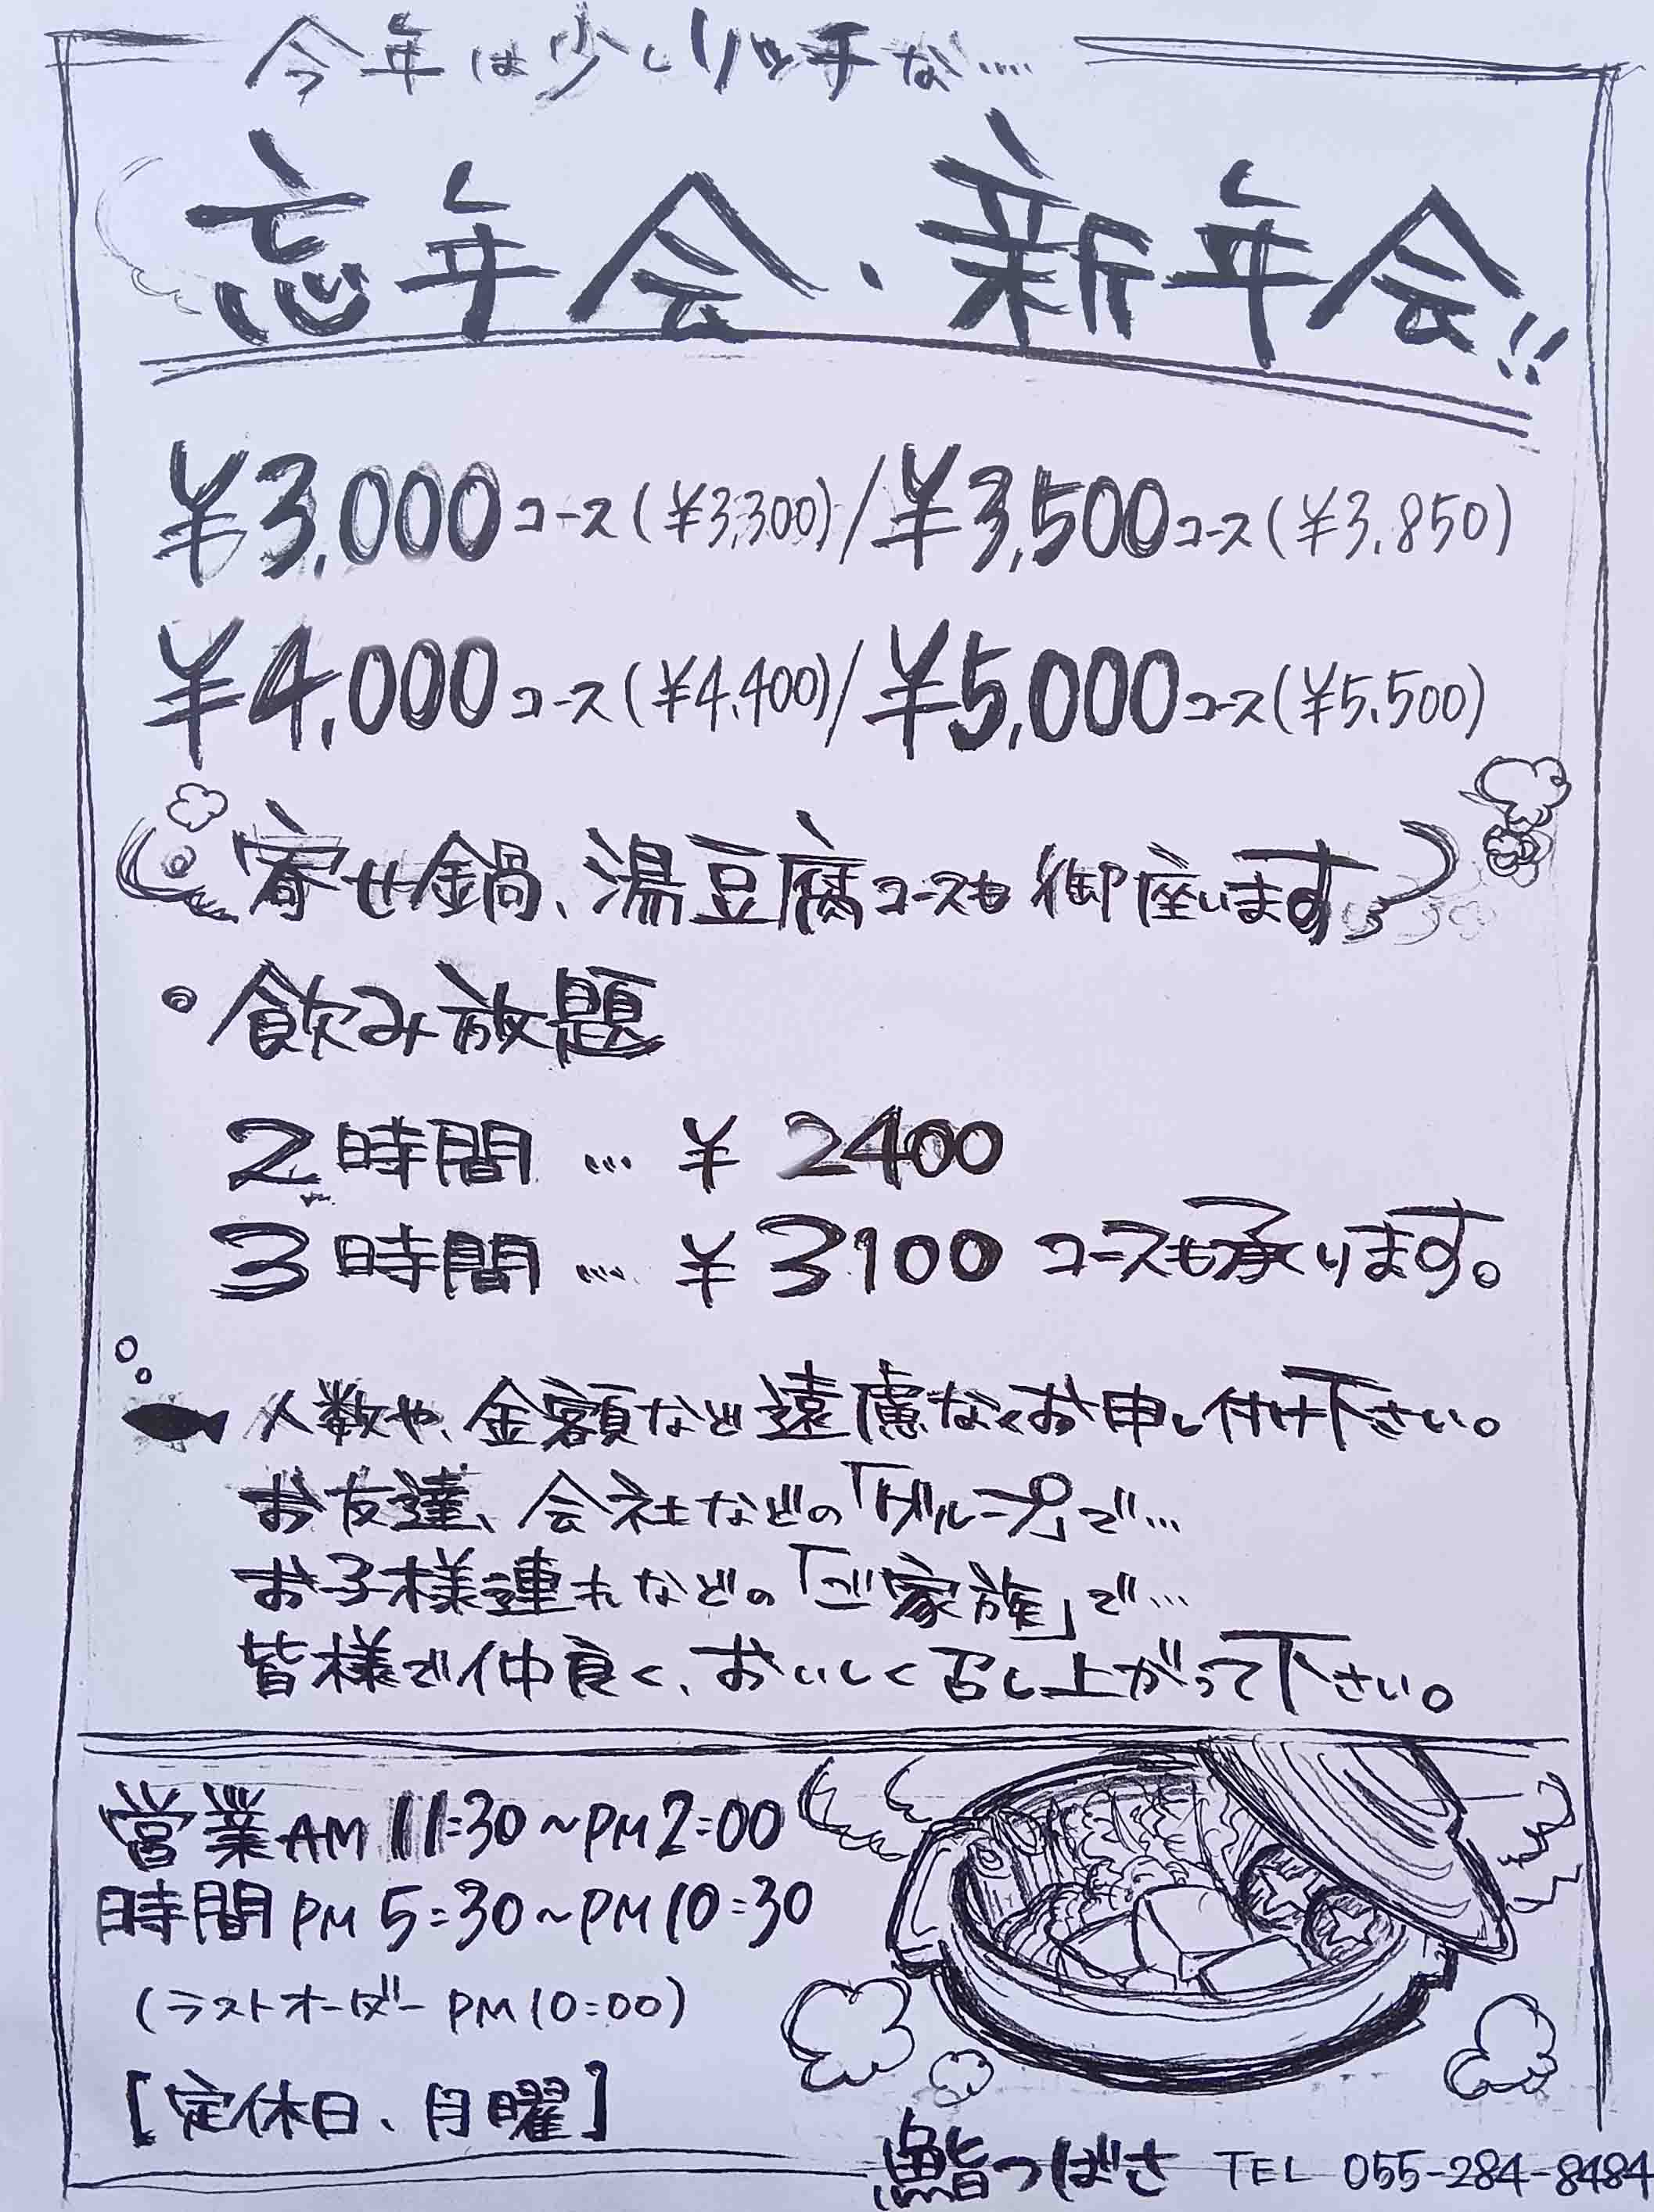 今年は少しリッチな…
忘年会・新年会!!
¥3,000コース(¥3,300)/¥3,500コース(¥3,850)
¥4,000コース(¥4,400)/¥5,000コース(¥5,500)
寄せ鍋、湯豆腐コースも御座います
◎飲み放題
2時間…¥2400
3時間…¥3100コースも承ります。
人数や、金額など遠慮なくお申し付け下さい。
お友達、会社などの「グループ」で…
お子様連れなどの「ご家族」で…
皆様で仲良く、おいしく召し上がって下さい。
営業 AM 11:30~PM 2:00
時間 PM 5:30~PM 10:30
(ラストオーダー PM 10:00)
[定休日、月曜]
鮨つばさ TEL 055-284-8484